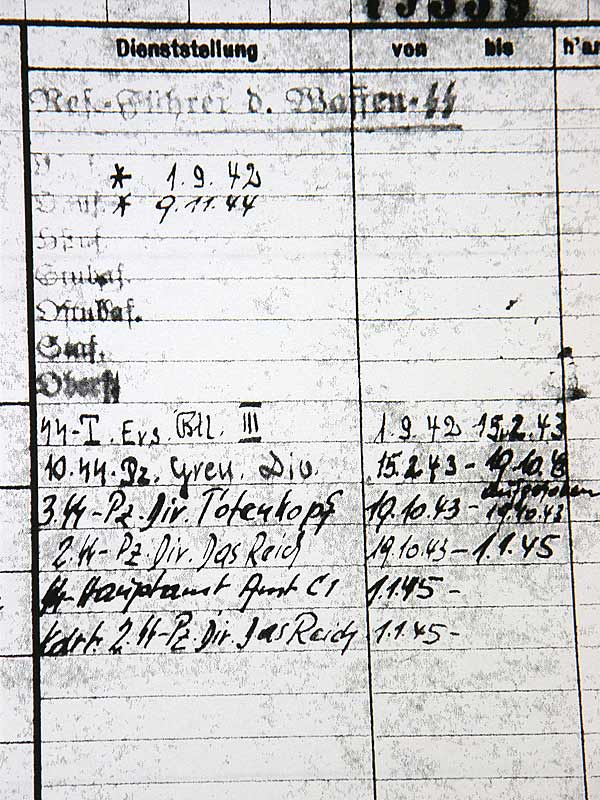 Dienststellung von bis
Res.-Führer d. Waffen-SS
* 1.9.42
* 9.11.44
Hstuf.
Stubaf.
Ostubaf.
Staf.
Oberf.
SS-I. Ers. Btl. III 1.9.42 15.2.43
10.SS-Pz. Gren. Div. 15.2.43 - 19.10.43
aufgehoben
3.SS-Pz.Div. Totenkopf 19.10.43 - 19.10.43
2.SS-Pz.Div. Das Reich 19.10.43 - 1.1.45
SS-Hauptamt Amt C1 1.1.45 -
Kdrt. 2.SS-Pz.Div. Das Reich 1.1.45 -